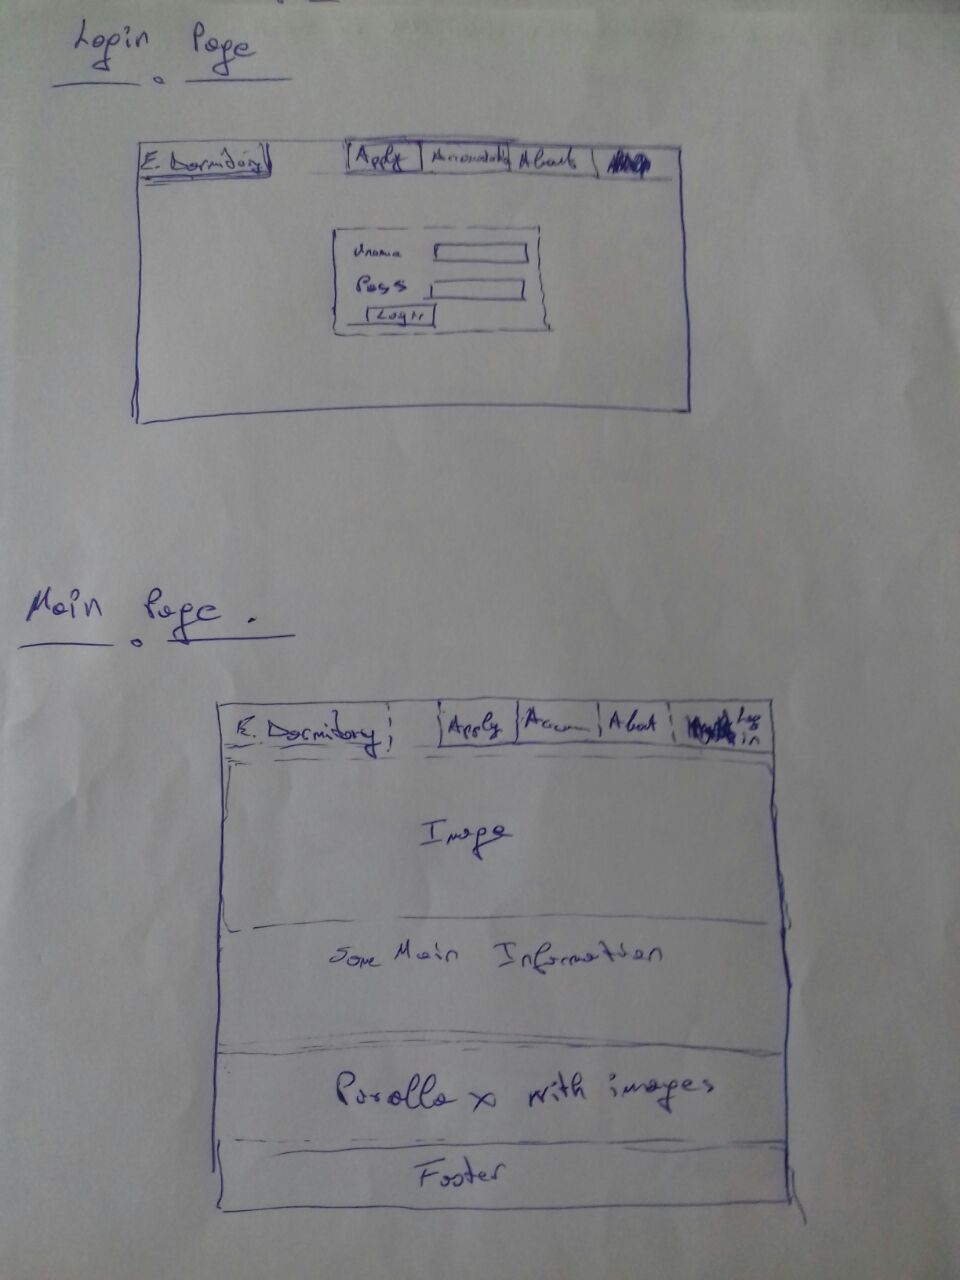 Login Page
E. Dormitory Apply About
Uname
Pass
Login
Main Page.
E. Dormitory Apply Accom About Log in
Image
Some Main Information
Parallax with images
Footer